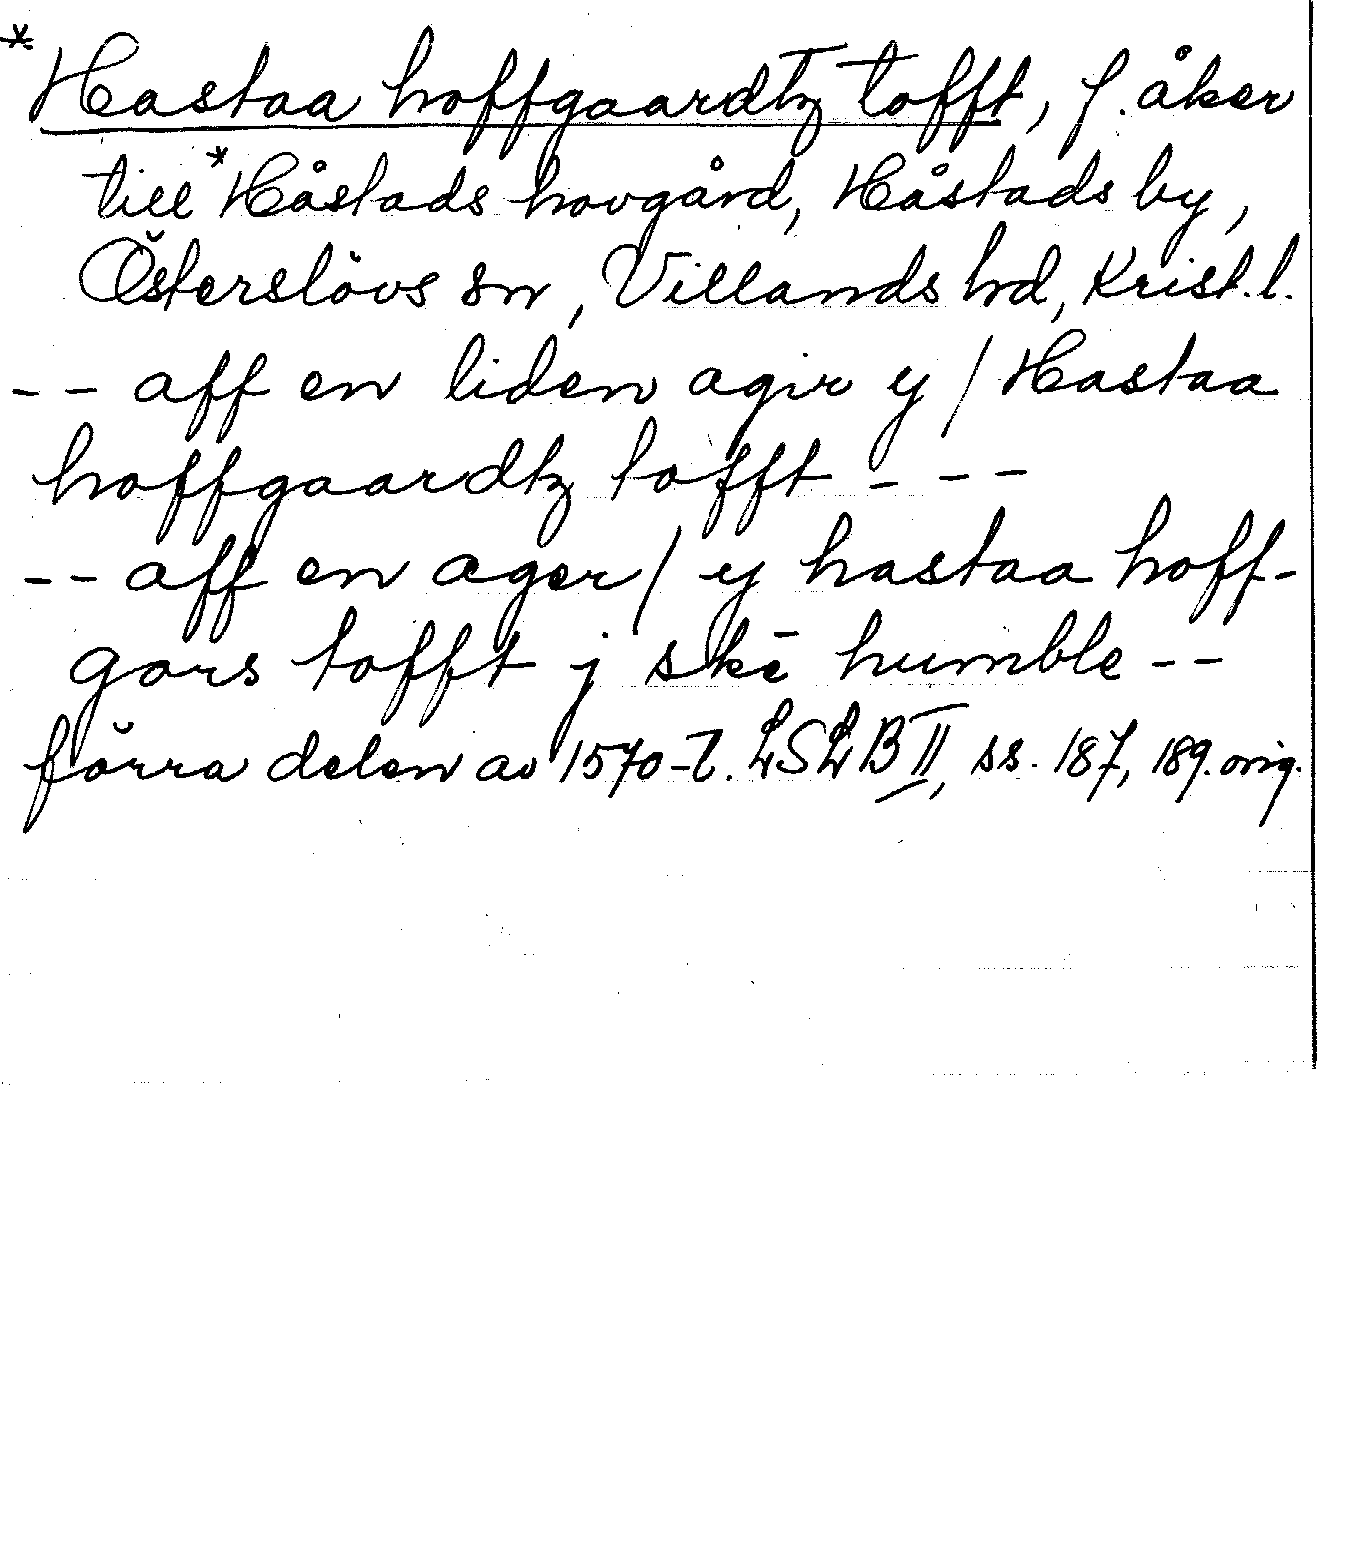 *Hastaa hoffgaardtz tofft, f. åker
till *Håstads hovgård, Håstads by,
Österslövs sn, Villands hd, Krist. l.
-- aff en liden agir y / Hastaa
hoffgaardtz tofft - - -
-- aff en ager / y hastaa hoff-
gars tofft j skē humble --
förra delen av 1570-t. LSLB II, ss. 187, 189. orig.